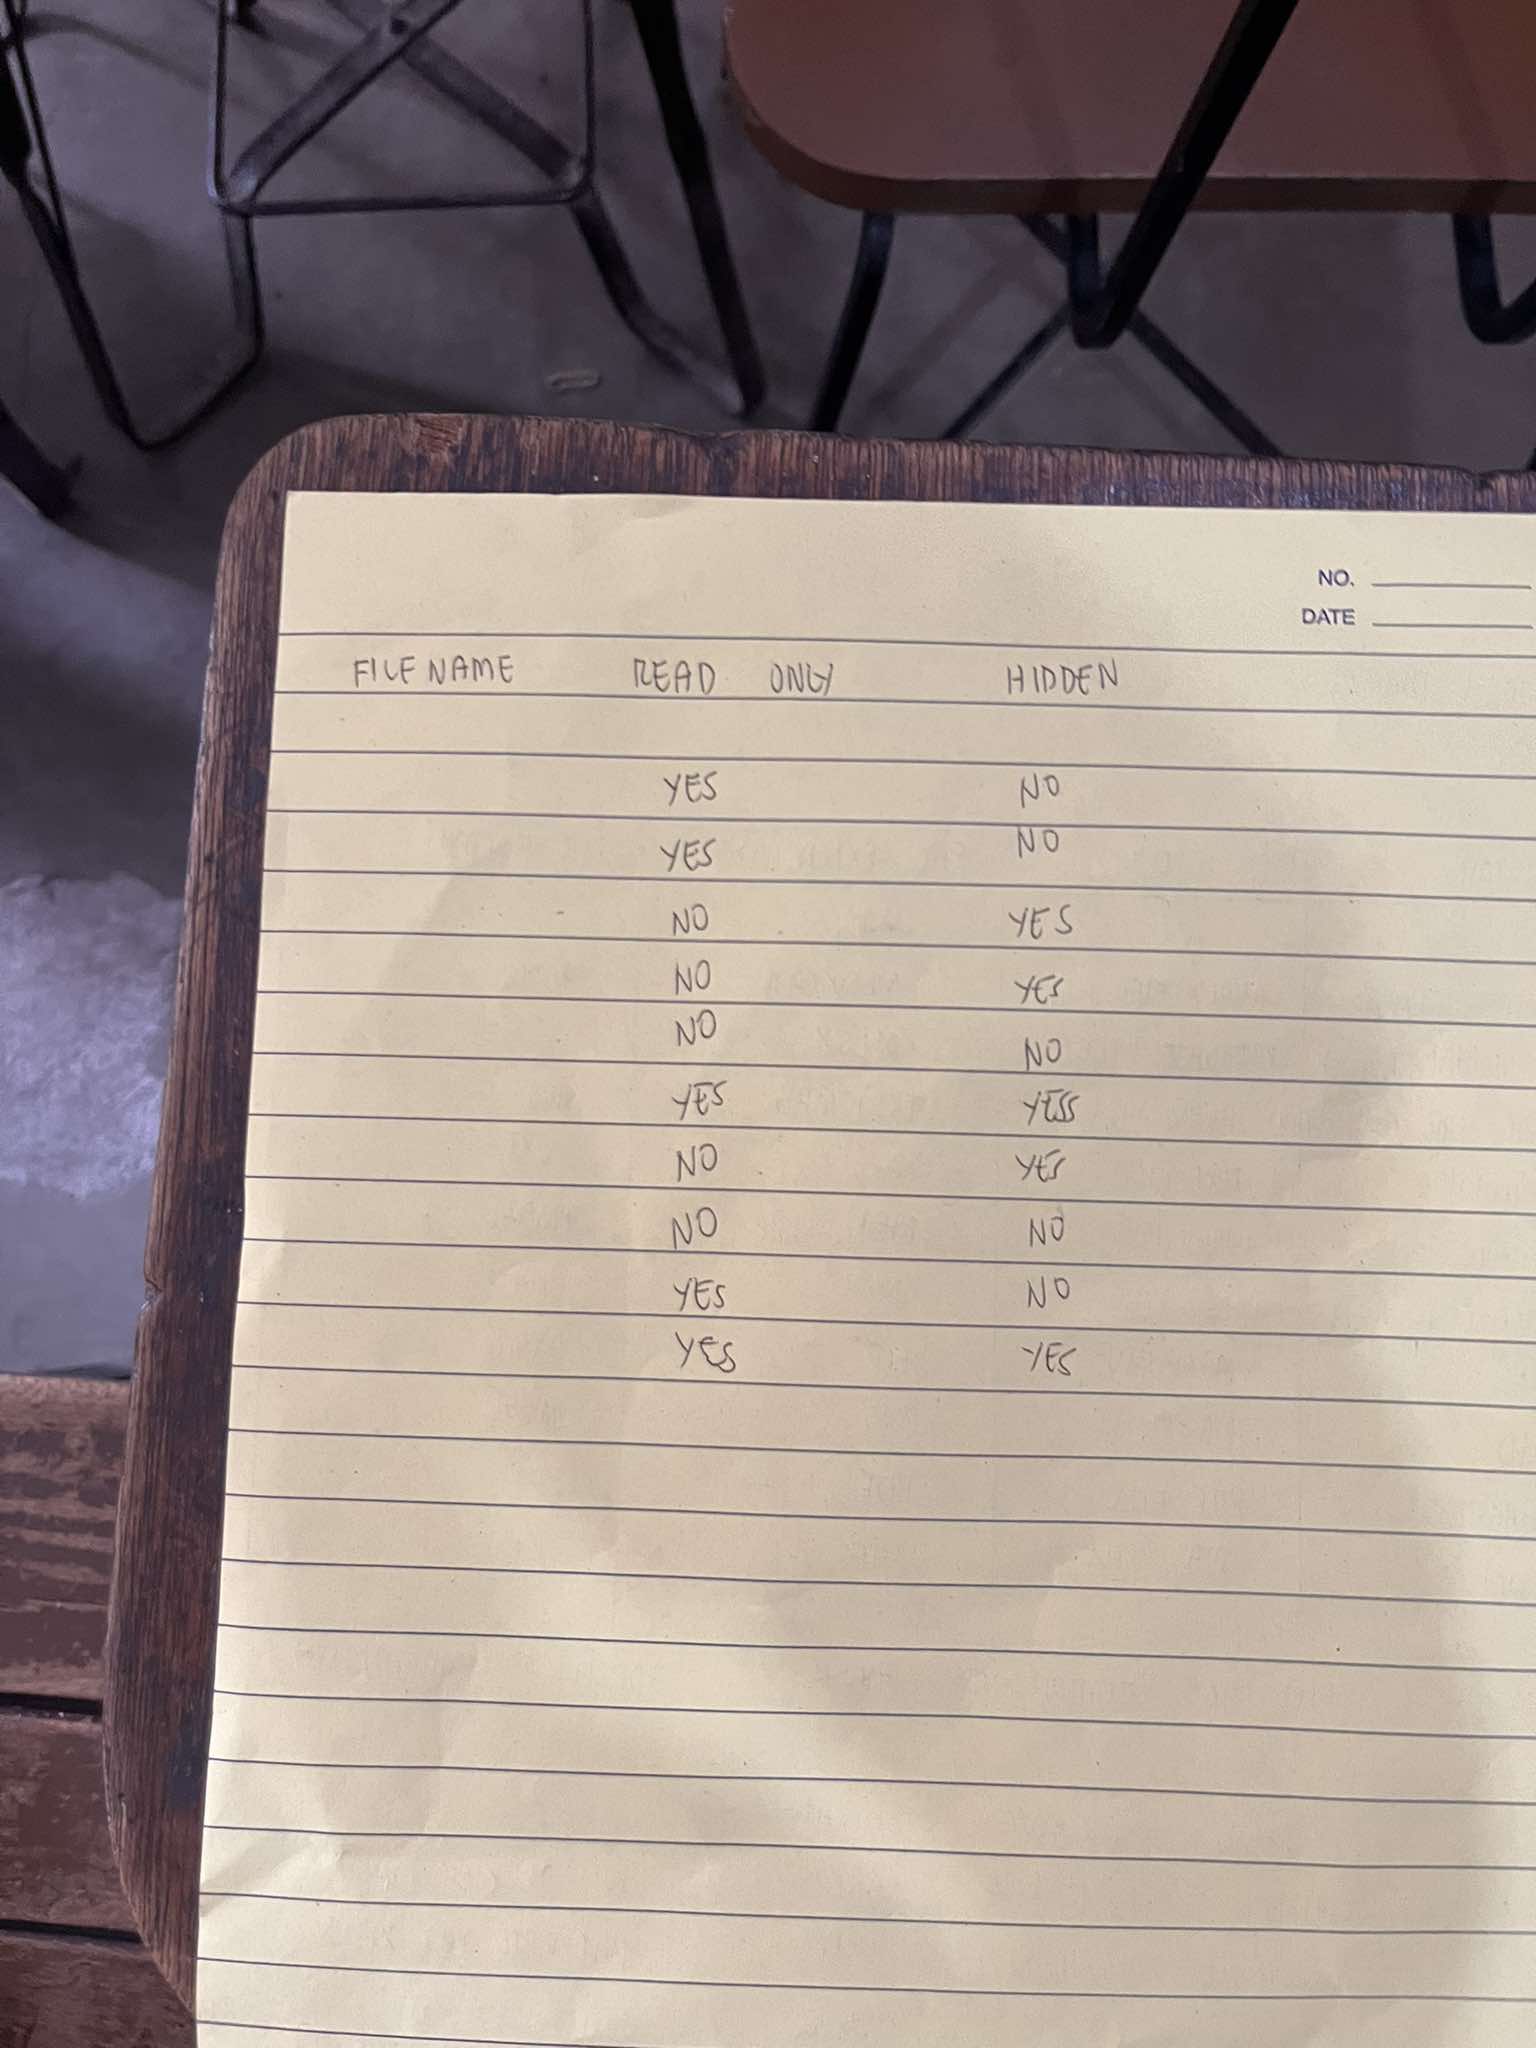 NO.
DATE
FILE NAME READ ONLY HIDDEN
YES NO
YES NO
NO YES
NO YES
NO NO
YES YESS
NO YES
NO NO
YES NO
YES YES